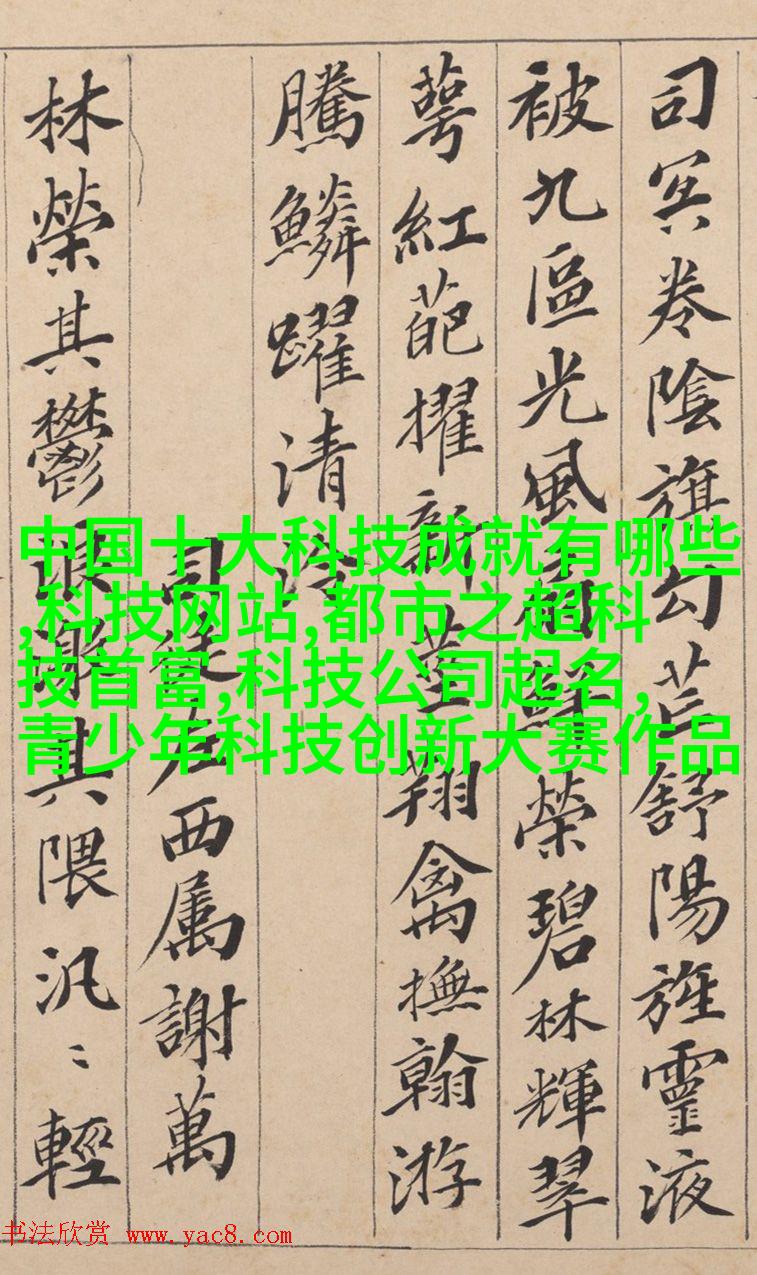 司冥卷陰旗勾芒舒陽旌靈液
被九區光風扇鮮榮碧林輝翠
萼紅葩擢新莖翔禽撫翰游
騰鱗躍清泠
司徒左西属謝萬
林榮其鬱浪激其隈汎〻輕
中国十大科技成就有哪些
,科技网站,都市之超科
技首富,科技公司起名,
青少年科技创新大赛作品
书法欣赏 www.yac8.com